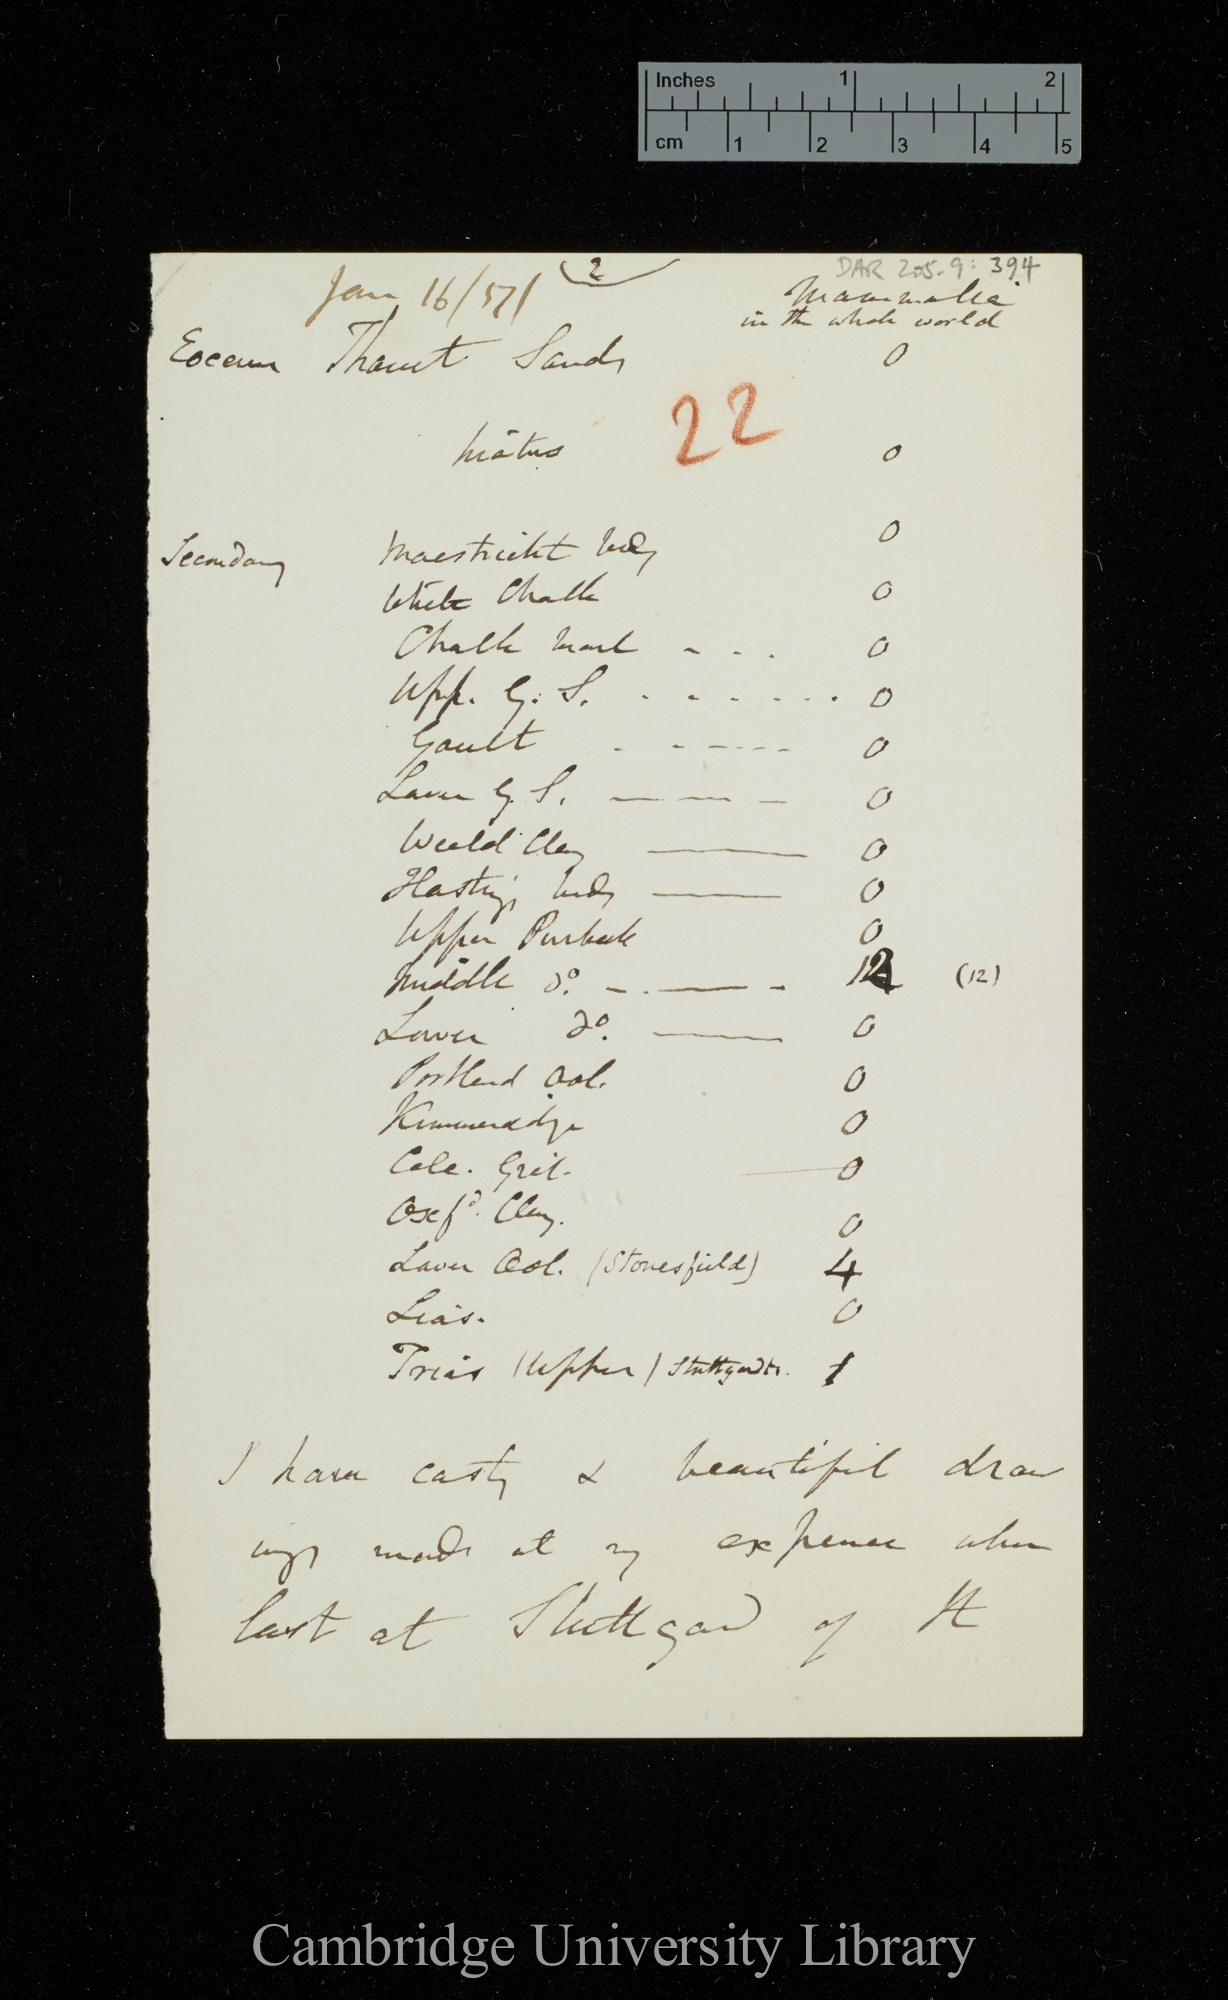 Inches 1 2
cm 1 2 3 4 5
DAR 205.9: 394
2
Jan 16/57/
Mammalia
in the whole world
Eocene Thanet Sands 0
22
hiatus 0
Secondary Maestricht beds 0
White Chalk 0
Chalk marl - - - 0
Upp. G. S. - - - - - - 0
Gault - - - - - - 0
Lower G. S. — — — 0
Weald Clay —— 0
Hastings beds —— 0
Upper Purbeck 0
Middle do. - - —— - 12 (12)
Lower do. —— 0
Portland Ool. 0
Kimmeridge 0
Calc. Grit. — 0
Oxfd. Clay. 0
Lower Ool. (Stonesfield) 4
Lias. 0
Trias (Upper) Stuttgardt. 1
I have casts & beautiful draw
ings made at my expense when
last at Stuttgard of
Cambridge University Library